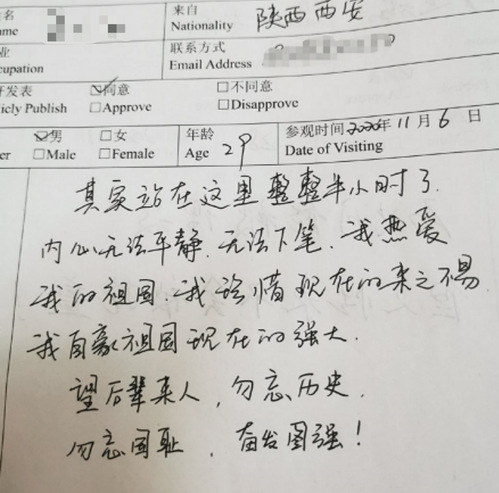 姓名 来自 陕西西安
Name Nationality
业 联系方式
cupation Email Address
开发表 ☑同意 □不同意
icly Publish □Approve □Disapprove
☑男 □女 年龄 29 参观时间2020年11月6日
er □Male □Female Age Date of Visiting
其实站在这里整整半小时了
内心无法平静.无法下笔.我热爱
我的祖国.我珍惜现在的来之不易
我自豪祖国现在的强大.
望后辈来人,勿忘历史.
勿忘国耻,奋发图强!